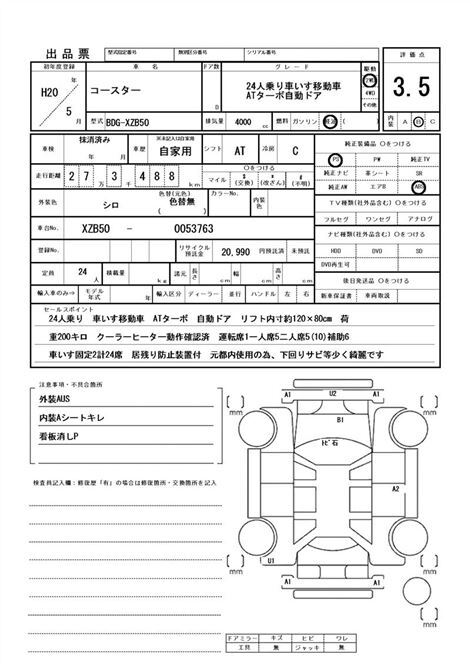 出品票 型式指定番号 類別区分番号 シリアル番号
初年度登録 車名 ドア数 グレード 駆動 評価点
H20 年 5 月 コースター D 24人乗り車いす移動車 ATターボ自動ドア 2WD 4WD その他 3.5
型式 BDG-XZB50 排気量 4000 cc 燃料 ガソリン 軽油 ( ) 内装 A B C
車検 抹消済み 年 月 車歴 ※未記入は自家用 自家用 シフト AT 冷房 C 純正装備品 Oをつける
PS PW 純正TV
走行距離 27万3千488km マイル Oをつける $ (交換) * (改ざん) # (不明) 純正ナビ 革シート SR
純正AW エアB ABS
外装色 シロ 色替(元色) 色替無 ( ) カラーNo. 内装色 TV種類(社外品含む) Oをつける
フルセグ ワンセグ アナログ
車台No. XZB50 - 0053763 ナビ種類(社外品含む) Oをつける
登録No. リサイクル預託金 20,990 円預託済 未預託 HDD DVD SD
DVD再生可
定員 24人 積載量 kg 諸元 長さ cm 幅 cm 高さ cm 後日発送品 Oをつける
輸入車のみ⇒ モデル年式 年 輸入区分 ディーラー 並行 ハンドル 左 右 新車保証書 車両取説
セールスポイント
24人乗り 車いす移動車 ATターボ 自動ドア リフト内寸約120×80cm 荷
重200キロ クーラーヒーター動作確認済 運転席1一人席5二人席5(10)補助6
車いす固定2計24席 居残り防止装置付 元都内使用の為、下回りサビ等少く綺麗です
注意事項・不具合箇所
外装AUS
内装Aシートキレ
看板消しP
検査員記入欄:修復歴「有」の場合は修復箇所・交換箇所を記入
A1 U2 A1
mm mm
B1
トビ石
A2
mm mm
U1
A1 A1
mm
ドアミラー キズ ヒビ ワレ
工具 無 ジャッキ 無